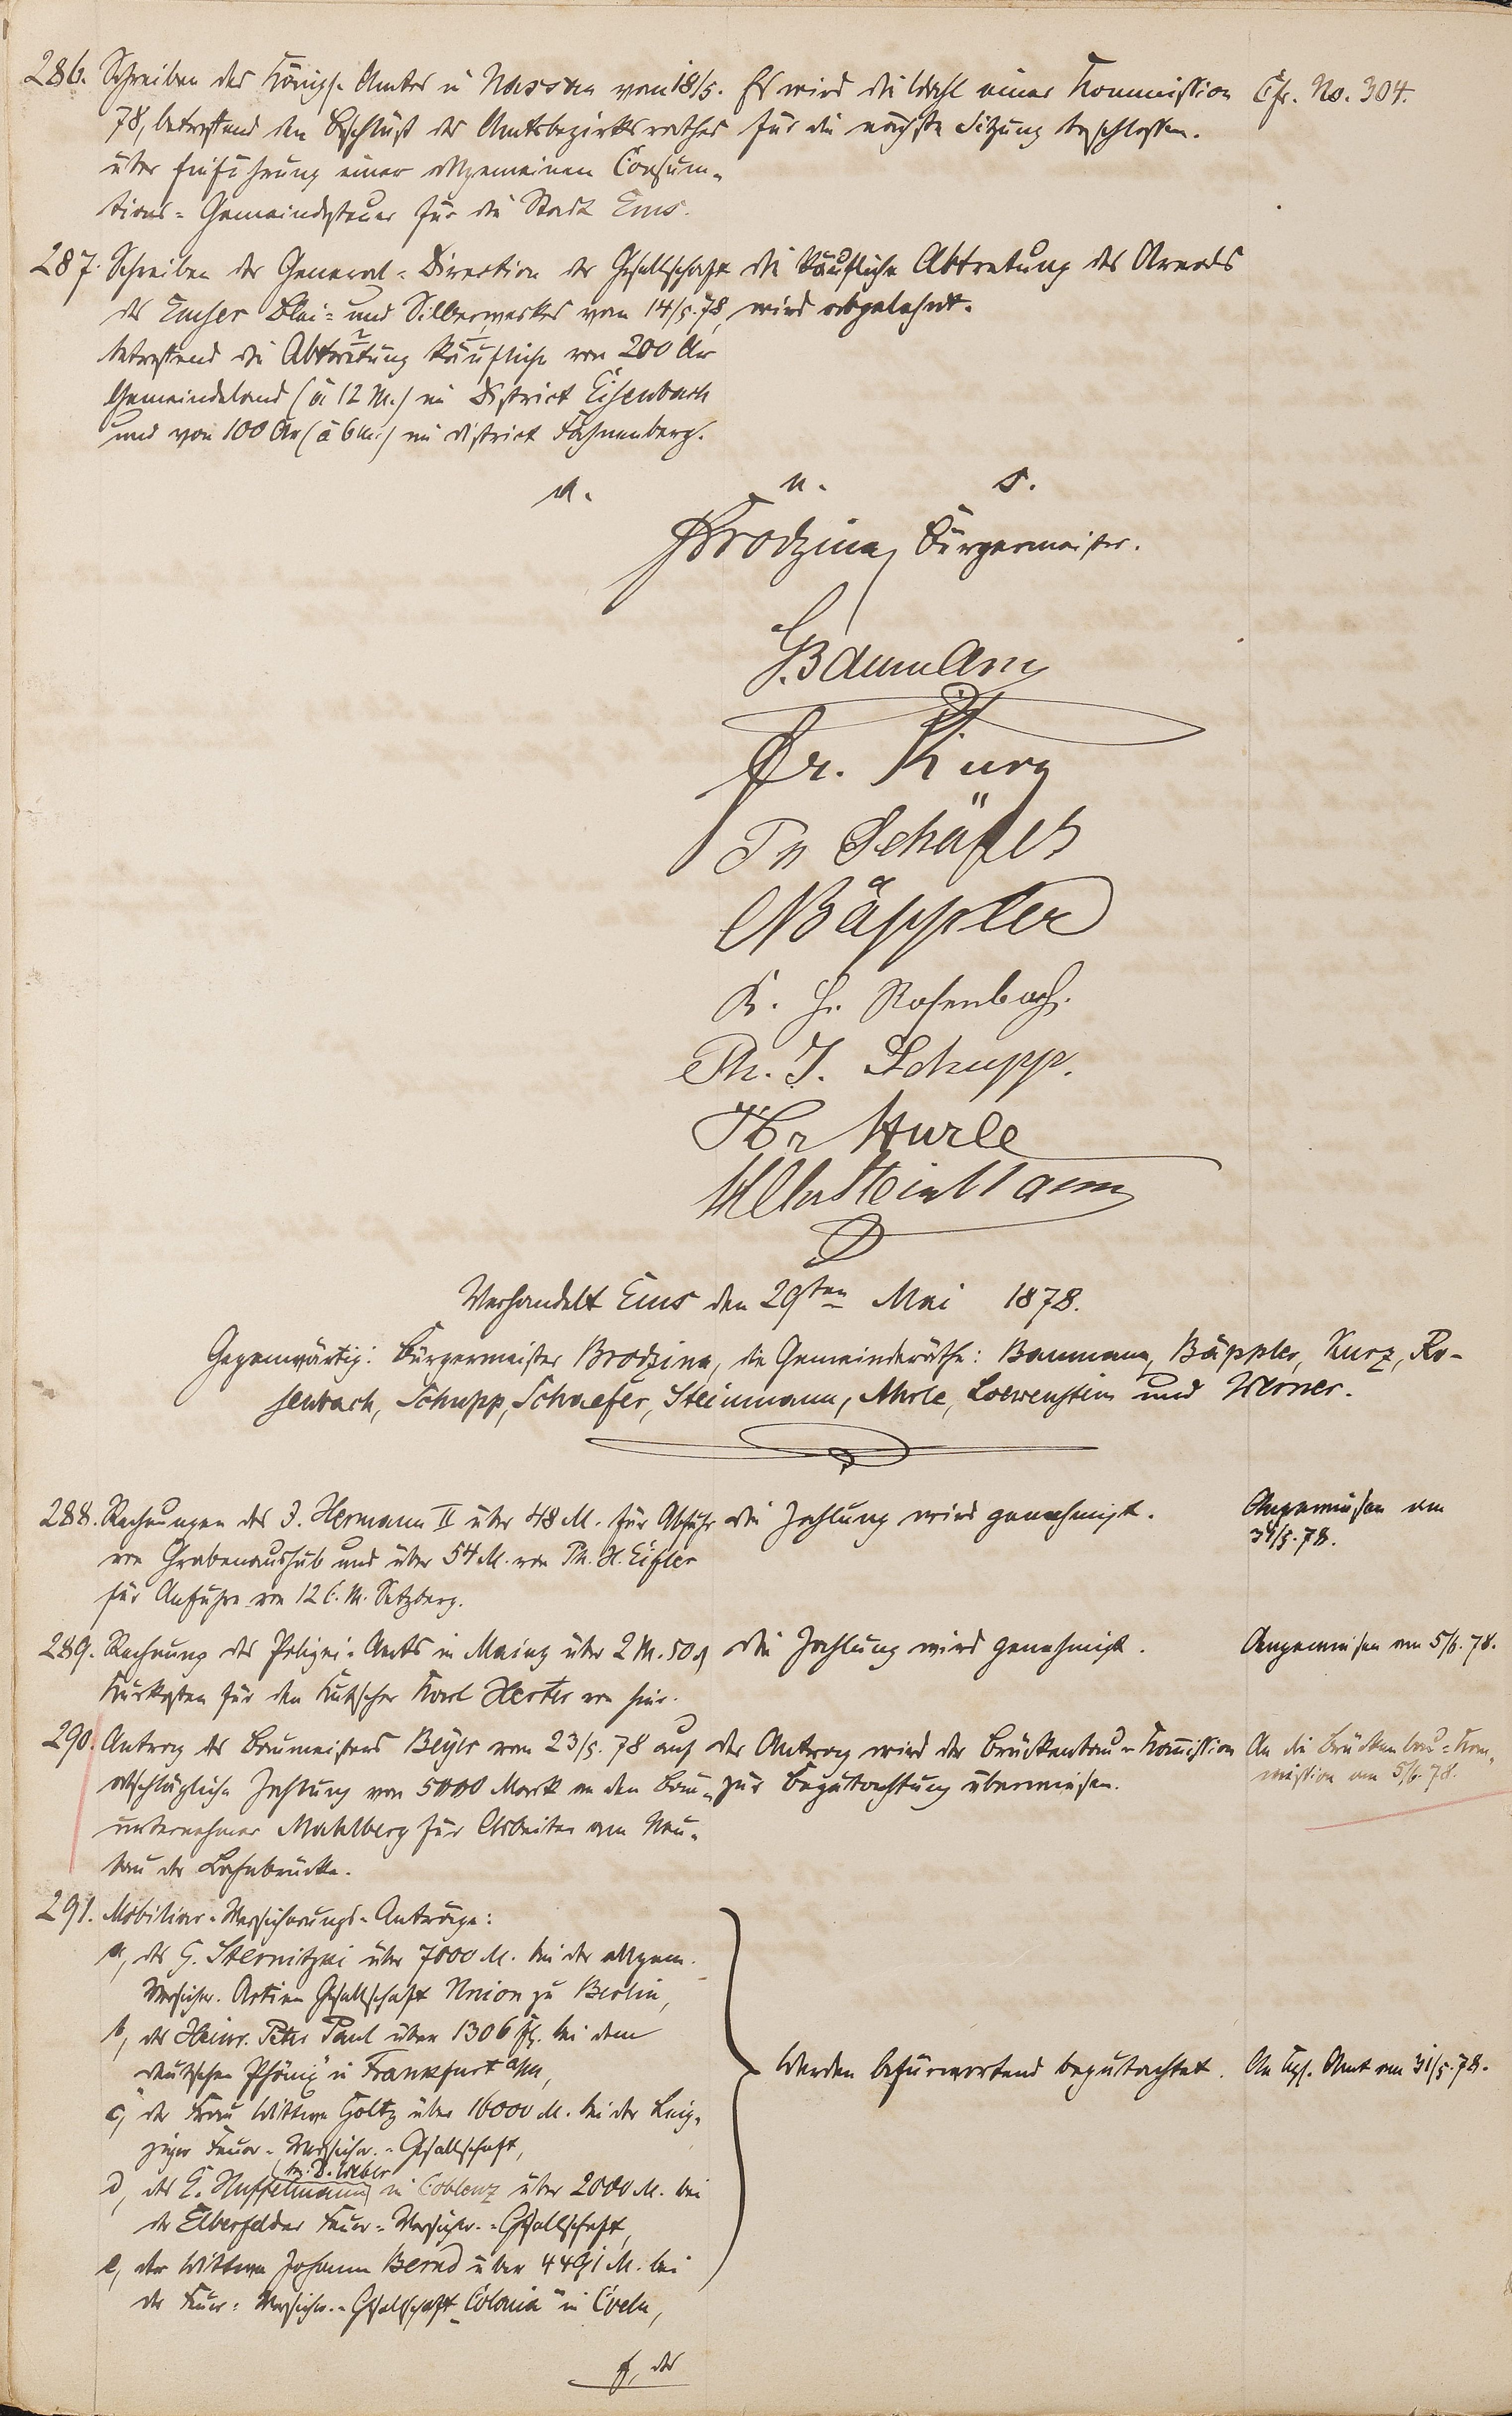 286. Schreiben des Königl. Amtes in Nassau vom 18/5.
78, betreffend den Beschluß des Amtsbezirksrathes
über Einführung einer allgemeinen Consum-
tions-Gemeindesteuer für die Stadt Ems.
Es wird die Wahl einer Kommission
für die nächste Sitzung beschlossen.
Cfr. No. 304.
287. Schreiben der General-Direction der Gesellschaft
des Emser Blei- und Silberwerkes vom 14/5.78,
betreffend die Abtretung käuflich von 200 Ar
Gemeindeland (à 12 M.) im District Eisenbach
und von 100 Ar (à 6 M.) im District Fahnenberg.
Die käufliche Abtretung des Areals
wird abgelehnt.
a. u. s.
Brodzina, Bürgermeister.
G. Baumann
Fr. Kurz
Schäfer
Bäppler
K. H. Rosenbach.
Ph. J. Schupp.
Steinmann
Verhandelt Ems den 29ten Mai 1878.
Gegenwärtig: Bürgermeister Brodzina, die Gemeinderäthe: Baumann, Bäppler, Kurz, Ro-
senbach, Schupp, Schaefer, Steinmann, Ahrle, Loewenstein und Werner.
288. Rechnungen des J. Hermann II über 48 M. für Abfuhr
von Grabenaushub und über 54 M. von Ph. H. Eisler
für Anfuhr von 12 C. M. Setzberg.
Die Zahlung wird genehmigt.
Angewiesen am
31/5.78.
289. Rechnung des Polizei-Amts in Mainz über 2 M. 50 ₰
Kurkosten für den Kutscher Karl Herter von hier.
Die Zahlung wird genehmigt.
Angewiesen am 5/6.78.
290. Antrag des Baumeisters Beyer vom 23/5.78 auf
abschlägliche Zahlung von 5000 Mark an den Bau-
unternehmer Mahlberg für Arbeiten am Neu-
bau der Lahnbrücke.
Der Antrag wird der Brückenbau-Kommission
zur Begutachtung überwiesen.
An die Brückenbau-Kom-
mission am 5/6.78.
291. Mobiliar-Versicherungs-Anträge:
a, des G. Sternitzki über 7000 M. bei der allgem.
Versicher. Actien Gesellschaft Union zu Berlin,
b, des Heinr. Peter Paul über 1306 fl. bei dem
deutschen Phönix" in Frankfurt a/M,
c, der Frau Wittwe Goltz über 16000 M. bei der Leip-
ziger Feuer-Versicher.-Gesellschaft,
d, des E. Huffelmann (bei D. Weber) in Coblenz über 2000 M. bei
der Elberfelder Feuer-Versicher.-Gesellschaft,
e, der Wittwe Johann Bernd über 4491 M. bei
der Feuer-Versicher.-Gesellschaft „Colonia" in Coeln,
Werden befürwortend begutachtet.
An Kgl. Amt am 31/5.78.
f, des